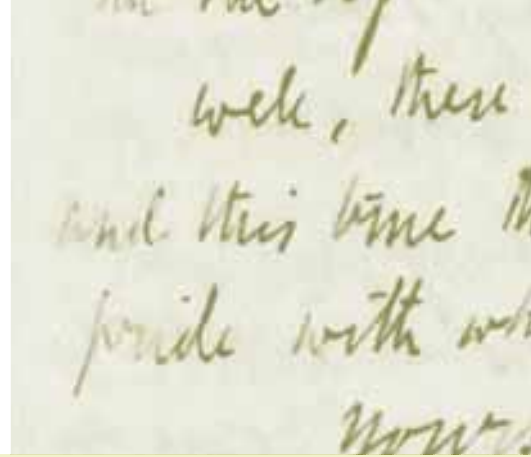 well, these
and this time th
pride with wh
yours